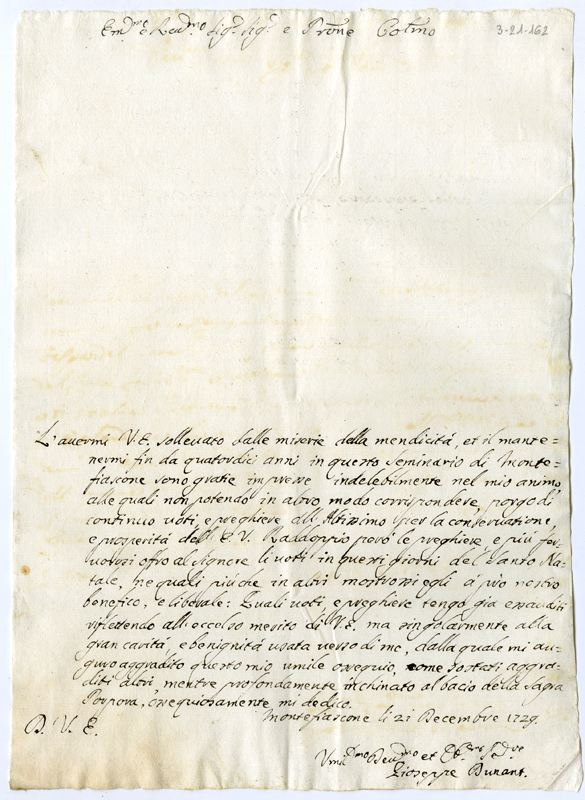 Em.mo e Rev.mo Sig.r Sig.r e Pro͞ne Col͞mo
3-21-162
L'avermi V.E. sollevato dalle miserie della mendicitá, et il mante=
nermi fin da quatordici anni in questo seminario di Monte=
fiascone sono gratie impresse indelebilmente nel mio animo,
alle quali non potendo in altro modo corrispondere, porgo di
continuo voti, e preghiere all'Altissimo per la conservatione,
e prosperitá dell'E.V. Raddoppio peró le preghiere e piú fer=
vorosi offro al Signore li voti in questi giorni del Santo Na=
tale, ne quali piú che in altri mostrossi egli á pró nostro
benefico, e liberale: Quali voti, e preghiere tengo giá exauditi
riflettendo all'eccelso merito di V.E. ma singolarmente alla
gran caritá, e benignitá usata verso di me, dalla quale mi au=
guro aggradito questo mio umile ossequio, come sostati aggra=
diti altri mentre profondamente inchinato al bacio della Sagra
Porpora, ossequiosamente mi dedico.
Montefiascone li 21 Decembre 1729.
D. V. E.
Um.mo Dev.mo et Ob.mo Se.dre
Gioseppe Dunant.